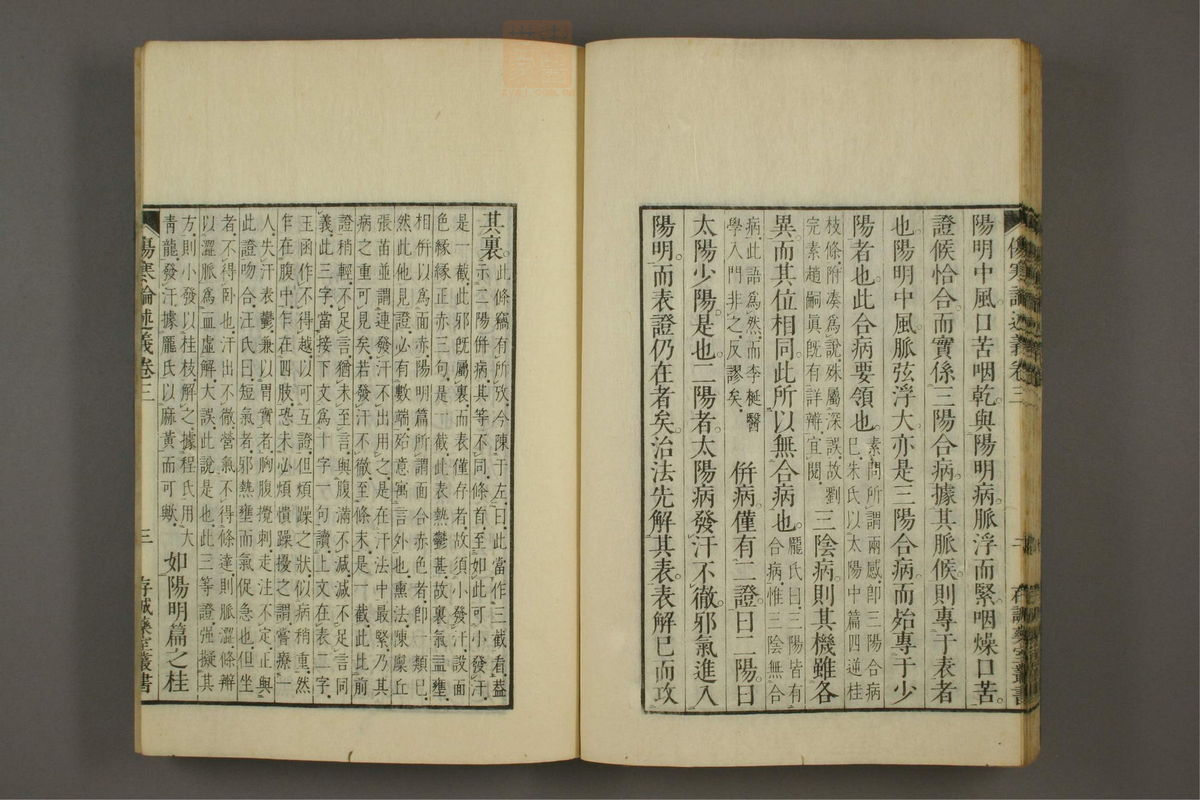 陽明中風。口苦咽乾。與陽明病脈浮而緊咽燥口苦。
證候恰合。而實係三陽合病。據其脈候。則專于表者
也。陽明中風。脈弦浮大。亦是三陽合病。而始專于少
陽者也。此合病要領也。素問所謂兩感。即三陽合病
已。朱氏以太陽中篇四逆桂
枝條附湊爲說。殊屬深誤。故劉
完素趙嗣眞既有詳辨。宜閱。三陰病。則其機雖各
異而其位相同。此所以無合病也。龐氏曰。三陽皆有
合病。惟三陰無合
病。此語爲然。而李梴醫
學入門非之。反謬矣。
併病。僅有二證。曰二陽。曰
太陽少陽。是也。二陽者。太陽病發汗不徹。邪氣進入
陽明。而表證仍在者矣。治法先解其表。表解已而攻
其裏。此條竊有所攷。今陳于左。曰此當作三截看。葢
示二陽併病其等不同。條首至如此可小發汗。
是一截。此邪既屬裏。而表僅存者。故須小發汗。設面
色緣緣正赤三句。是一截。此表熱鬱甚。故裏氣亦壅。
相併以爲面赤。陽明篇所謂面合赤色者。卽一類已。
然此他見證。必有數端。殆意寓言外也。熏法陳廩丘
張苗並謂連發汗不出用之。是在汗法中最緊。乃其
病之重可見矣。若發汗不徹。至條末。是一截。此比前
證稍輕。不足言猶未至言。與腹滿不減減不足言同
義。此三字。當接下文爲十字一句讀。上文在表二字。
玉函作不得越。以可互證。但煩躁之狀。似病稍重。然
乍在腹中。乍在四肢。恐未必煩憒躁擾之謂。嘗療一
人。失汗表鬱。兼以胃實者。胸腹攪刺。走注不定。正與
此證吻合。汪氏曰。短氣者。邪熱壅而氣促急也。但坐
者。不得臥也。汗出不徹。營氣不得條達。則脈澀。條辨
以澀脈爲血虛解。大誤。此說是也。此三等證。强擬其
方。則小發以桂枝。解之據程氏用大
靑龍。發汗據龐氏以麻黃而可歟。如陽明篇之桂
傷寒論述義卷三
三
存誠藥室叢書